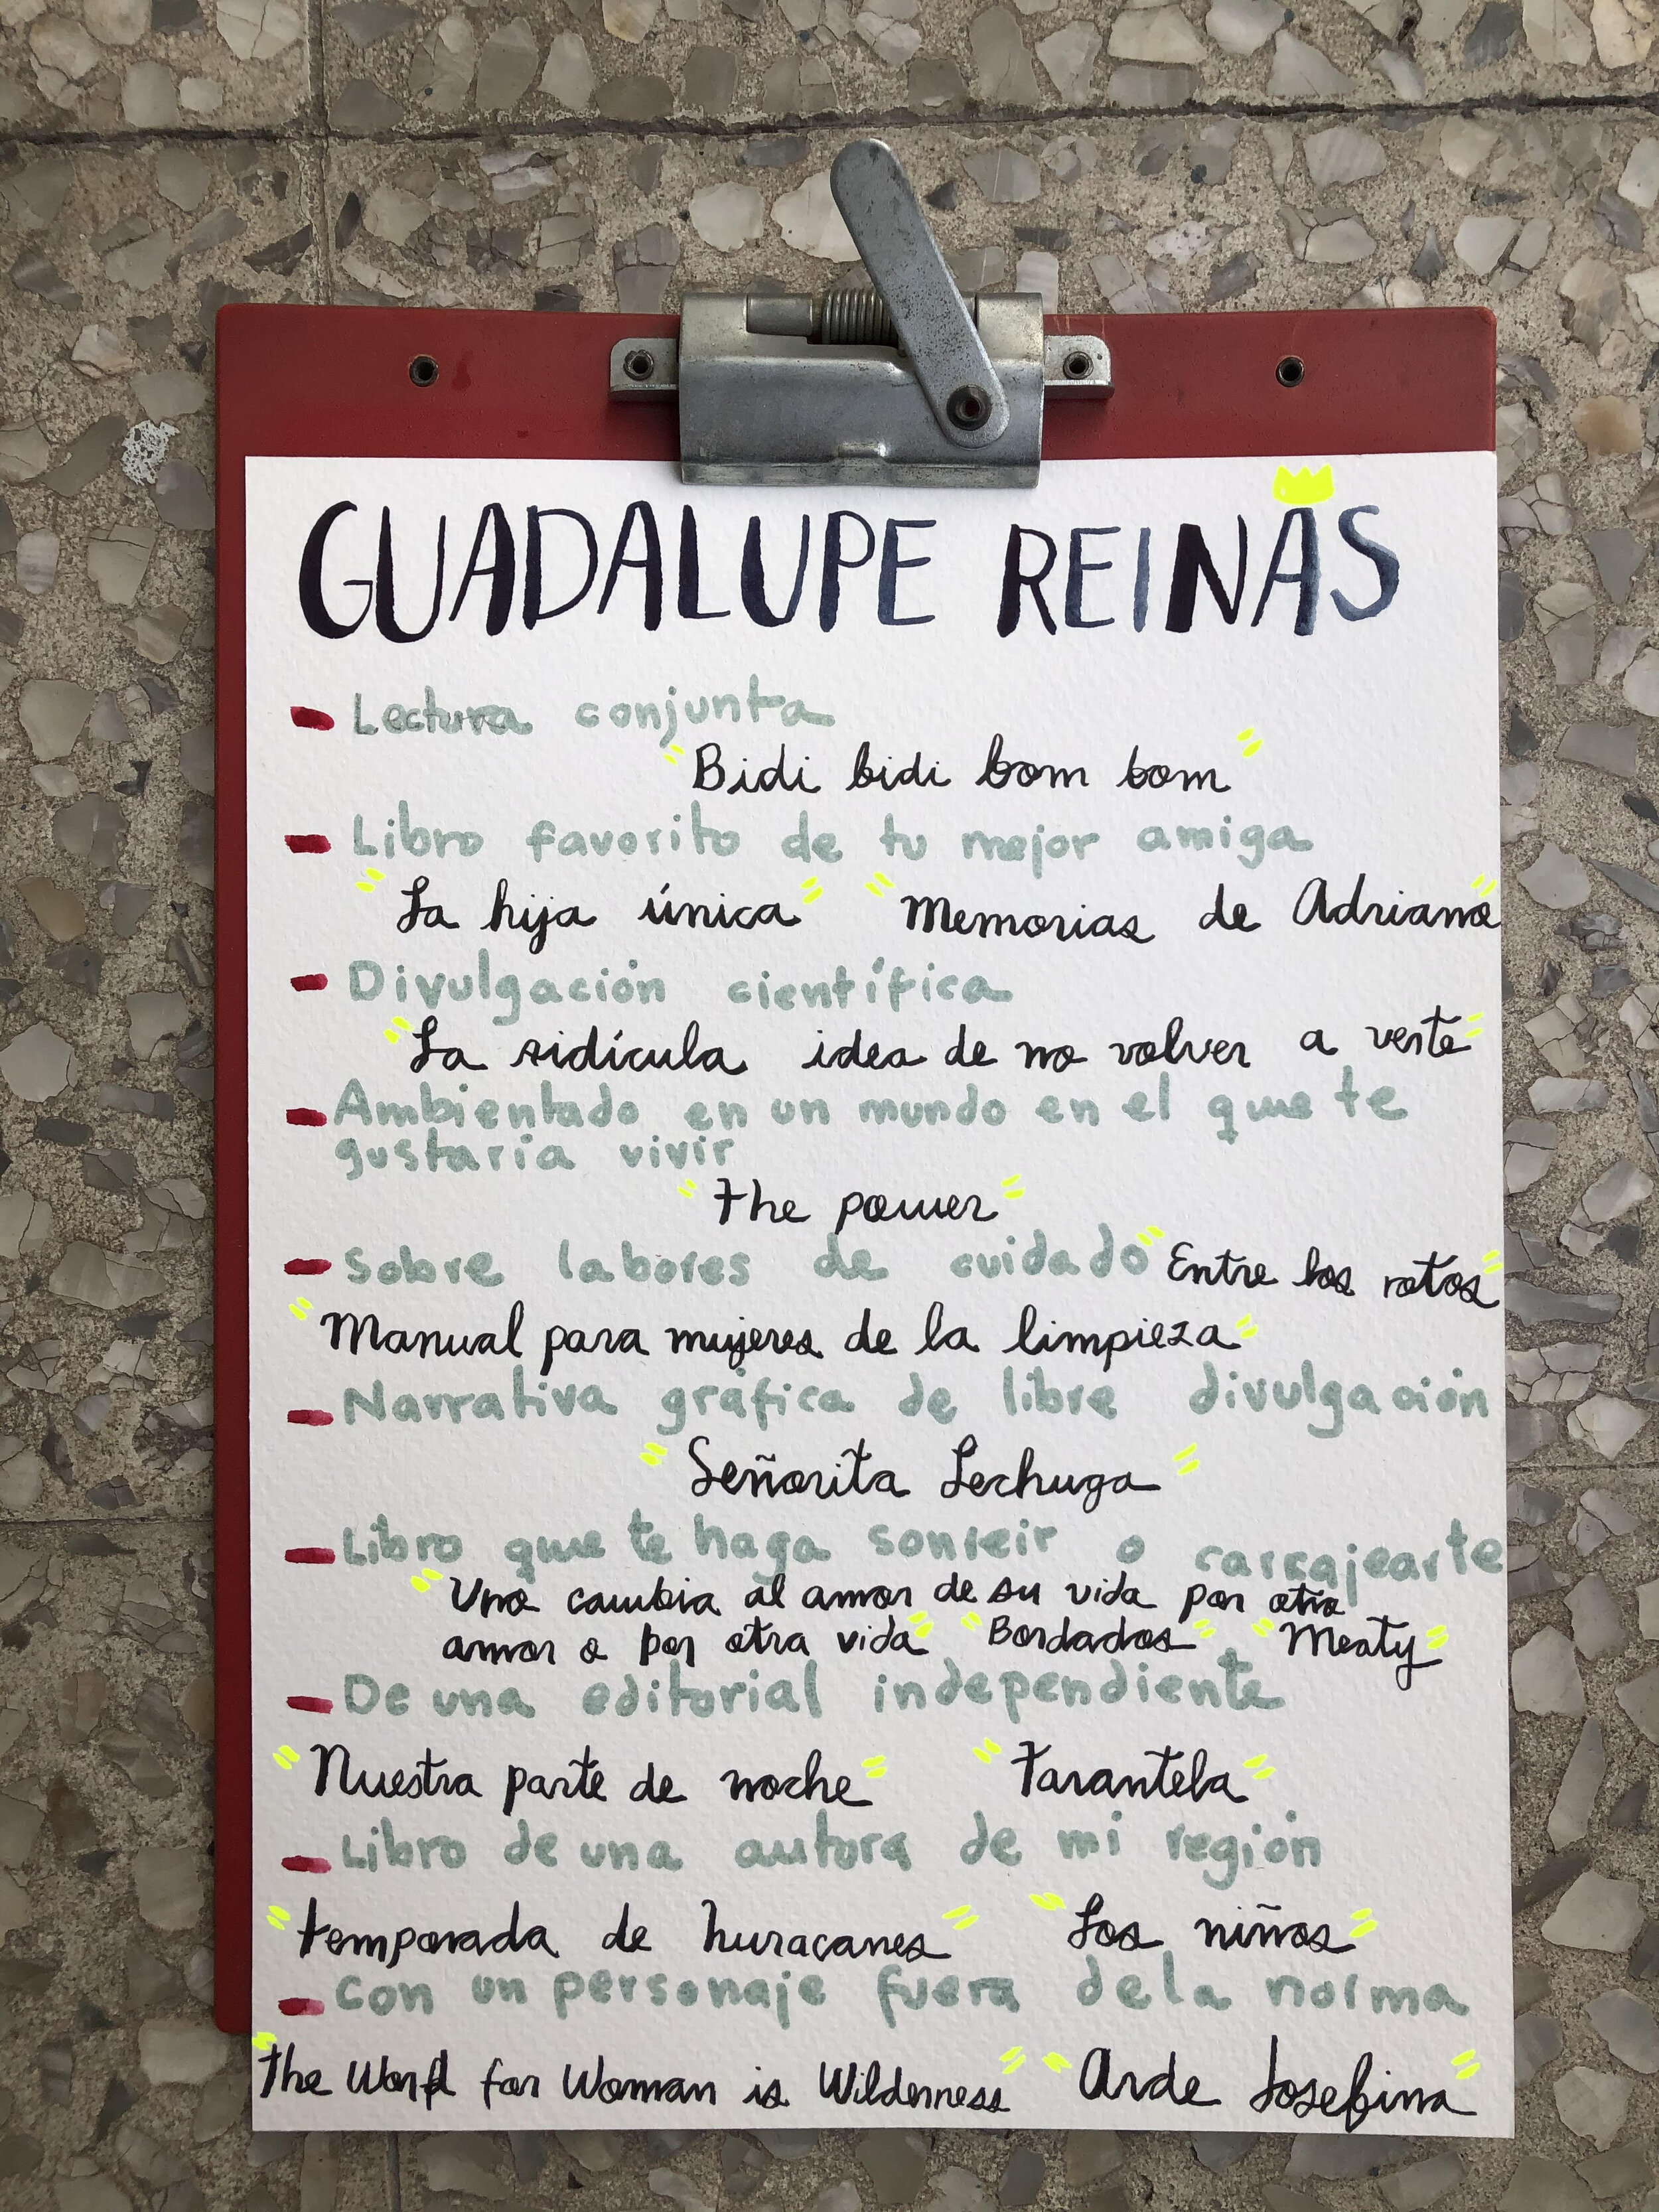 GUADALUPE REINAS
- Lectura conjunta
"Bidi bidi bom bom"
- Libro favorito de tu mejor amiga
"La hija única" "Memorias de Adriano"
- Divulgación científica
"La ridícula idea de no volver a verte"
- Ambientado en un mundo en el que te
gustaria vivir
"The power"
- Sobre labores de cuidado "Entre los rotos"
"Manual para mujeres de la limpieza"
- Narrativa gráfica de libre divulgación
"Señorita Lechuga"
- Libro que te haga sonreir o carcajearte
"Uno cambia al amor de su vida por otro
amor o por otra vida" "Bordados" "Meaty"
- De una editorial independiente
"Nuestra parte de noche" "Tarantela"
- Libro de una autora de mi región
"temporada de huracanes" "Los niños"
- Con un personaje fuera de la norma
"The Word for Woman is Wilderness" "Arde Josefina"